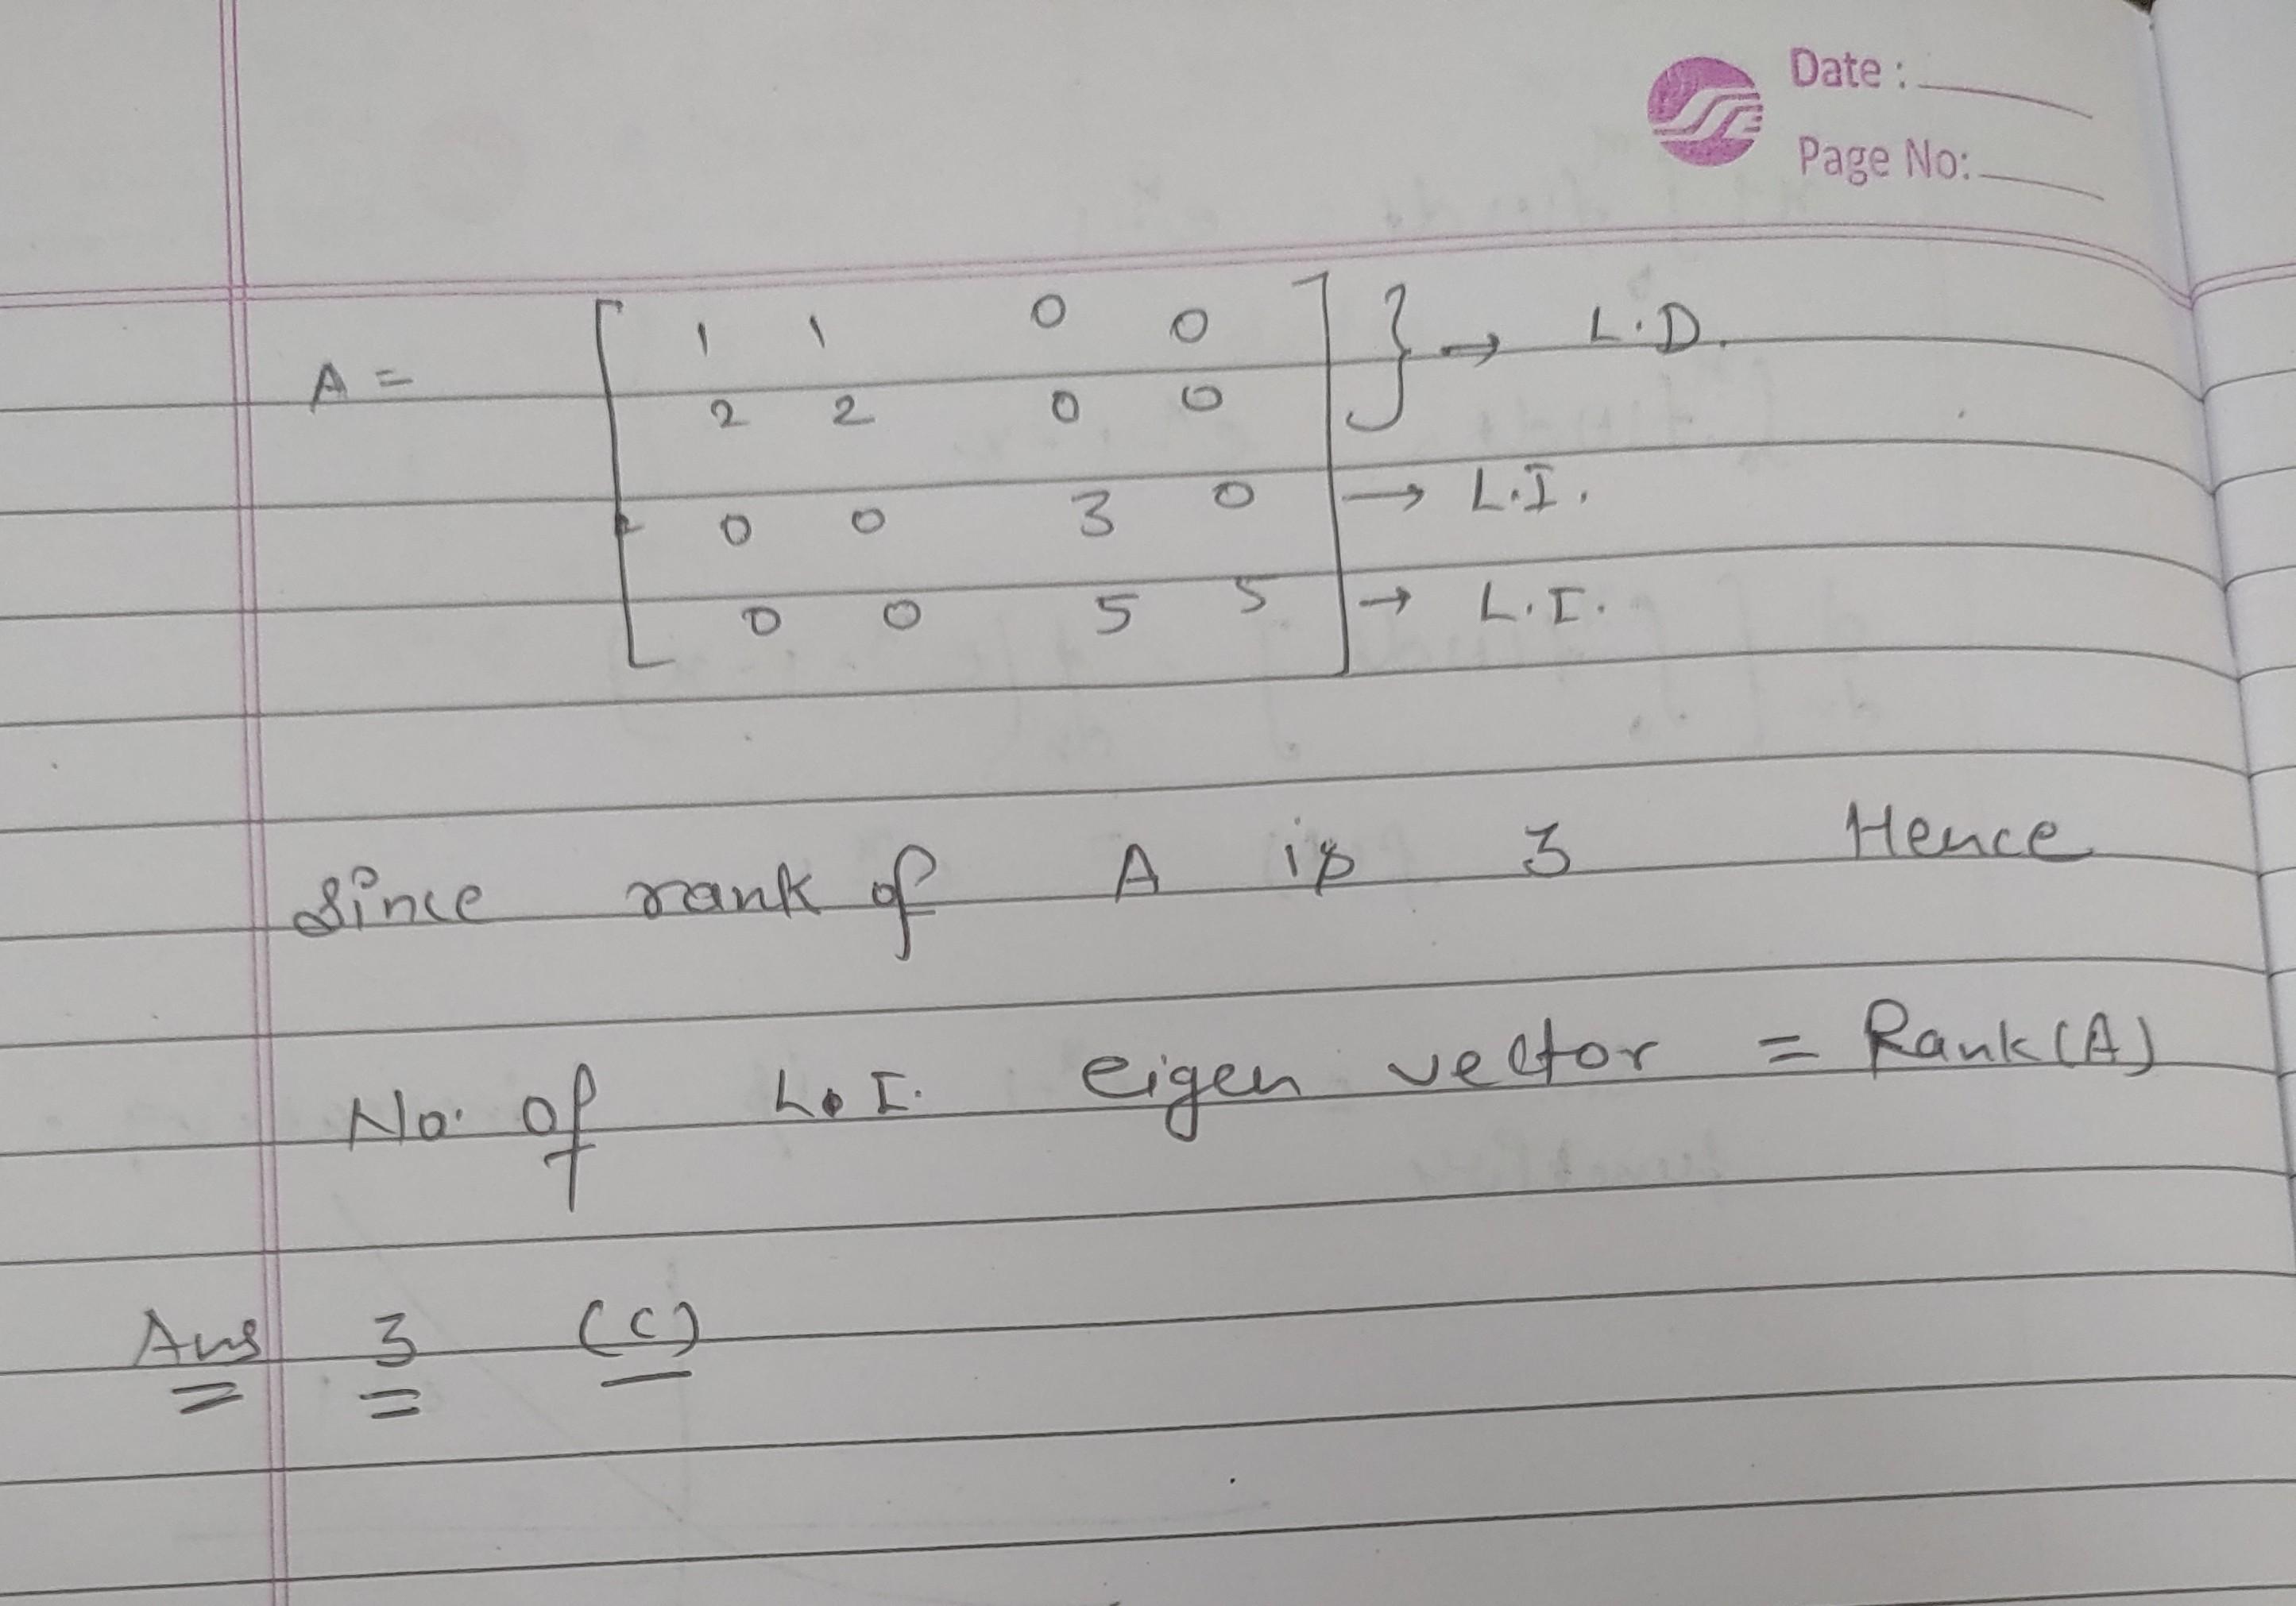 Date :
Page No:
A = [ 1 1 0 0 ] } → L.D.
2 2 0 0
0 0 3 0 → L.I.
0 0 5 5 → L.I.
Since rank of A is 3 Hence
No. of L.I. eigen vector = Rank(A)
Ans 3 (C)